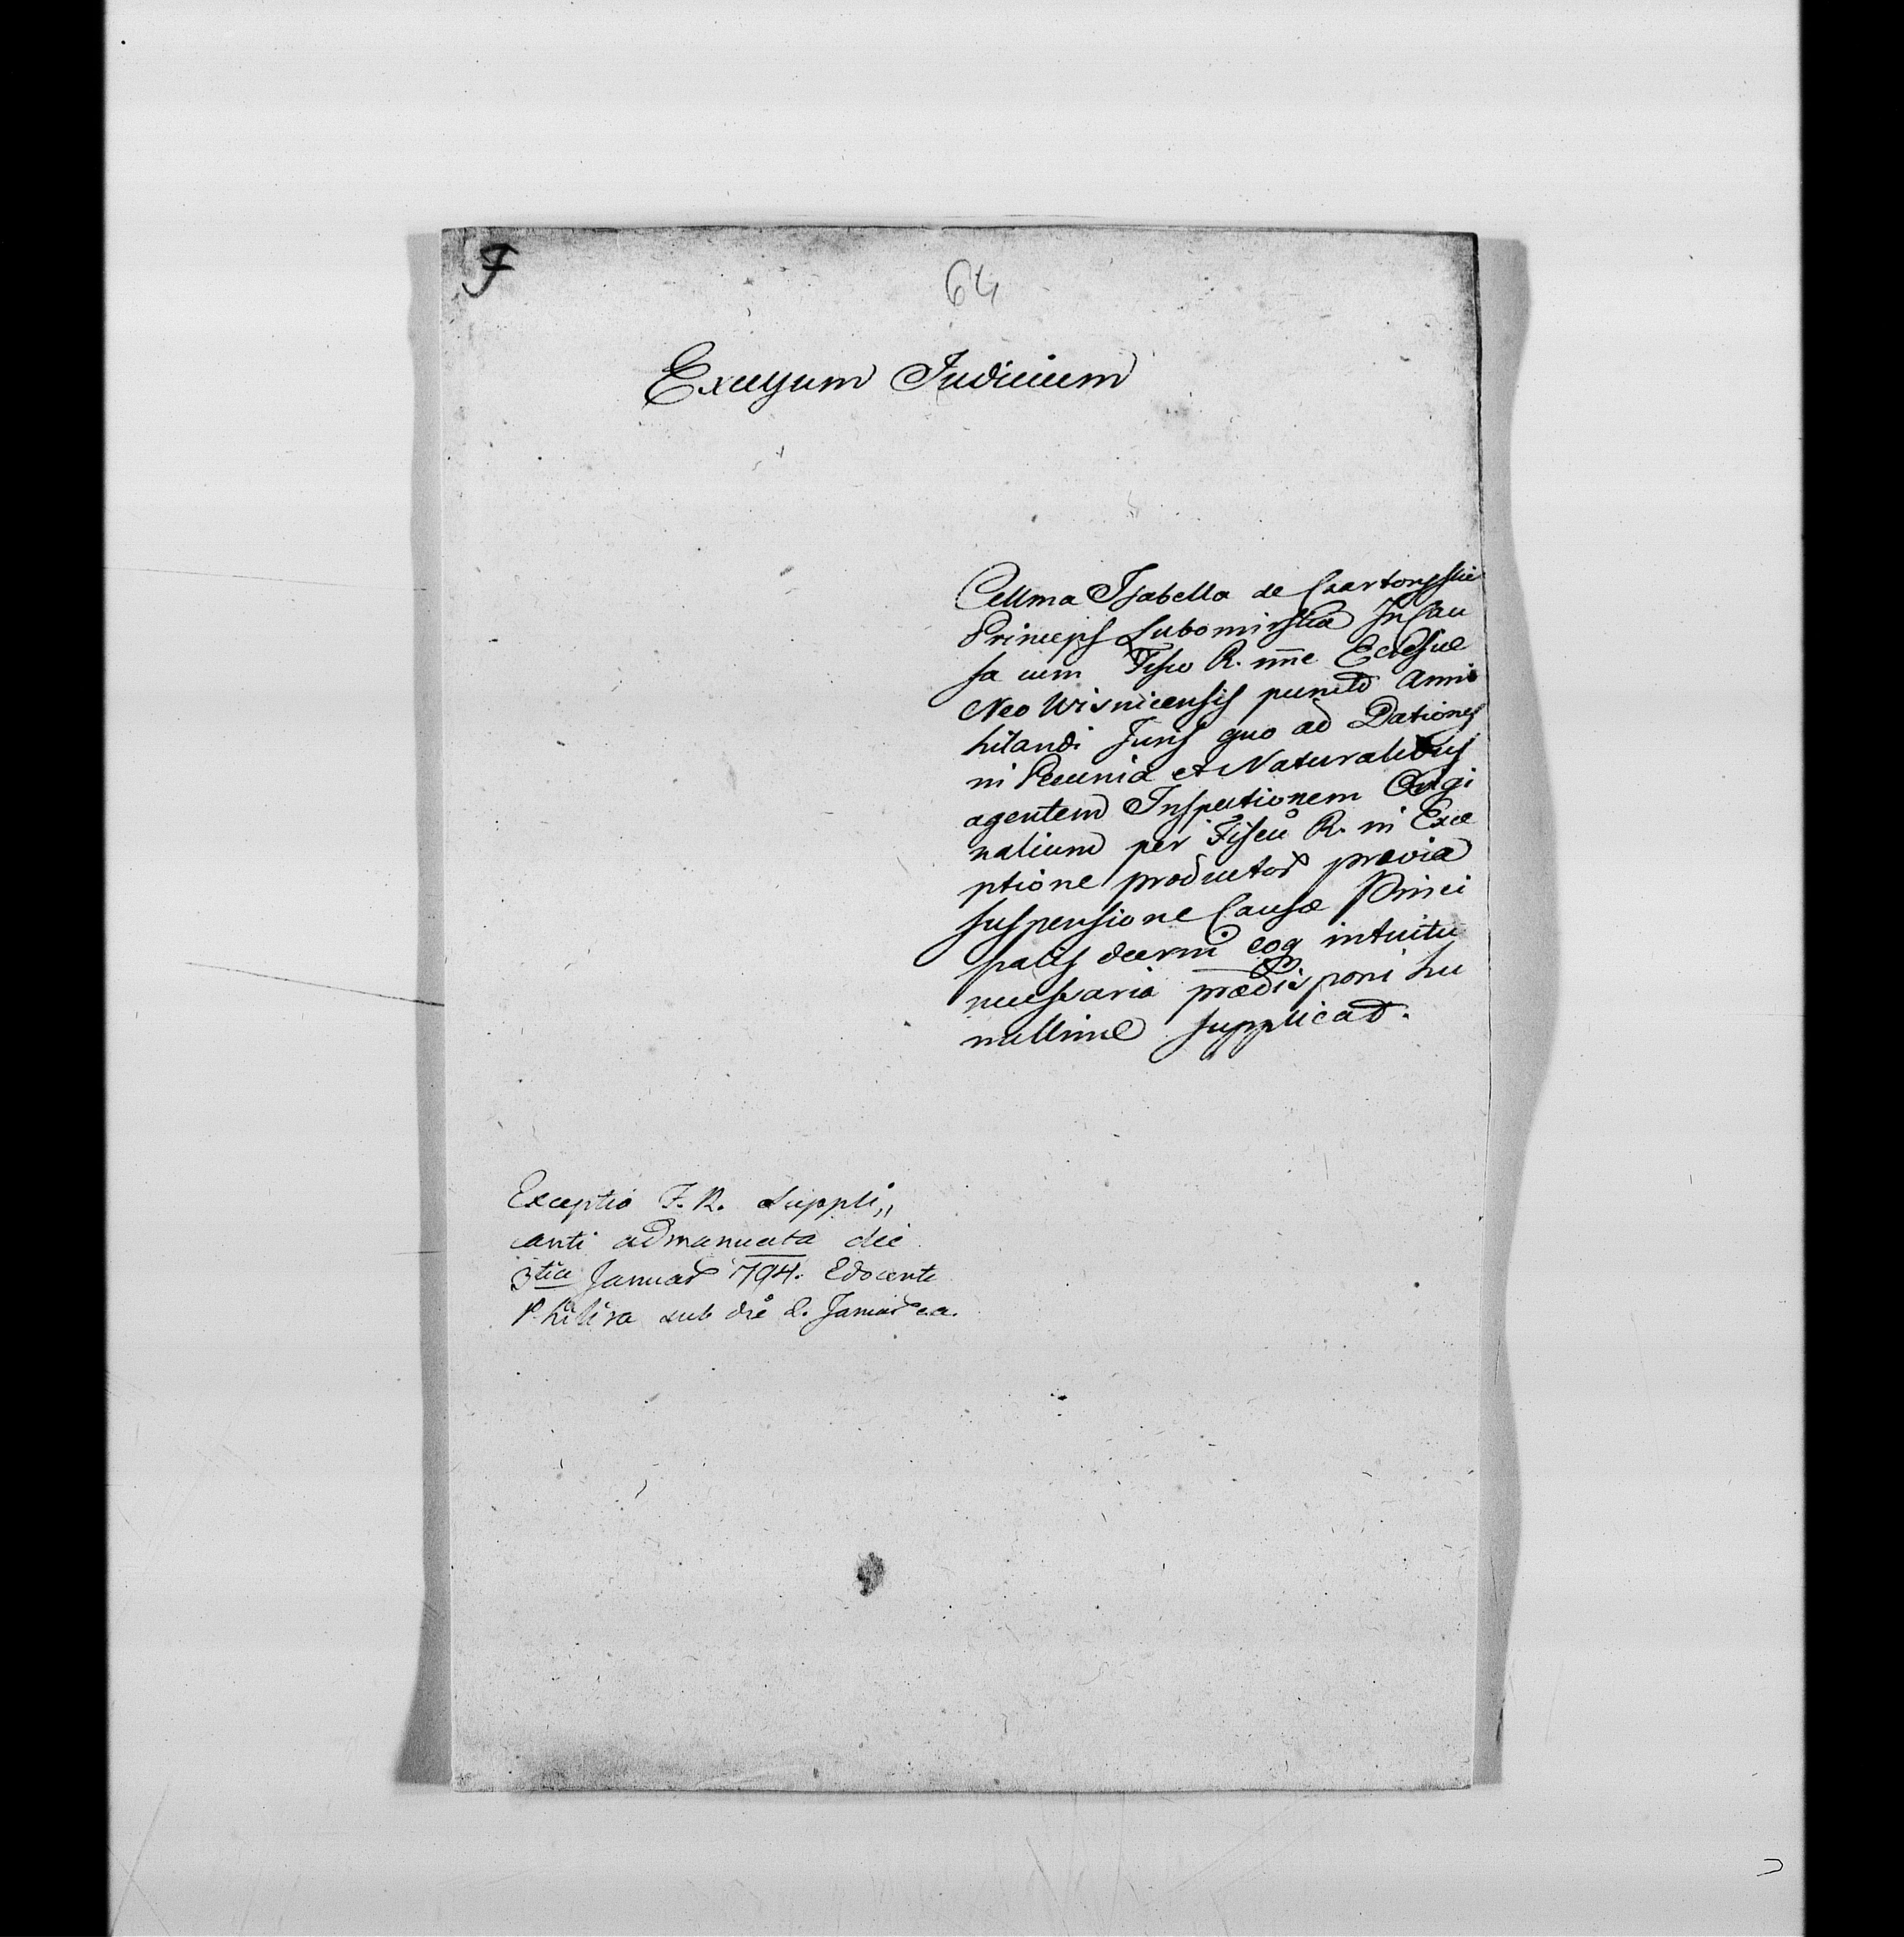 F
64
Excegum Judicium
Cellma Isabella de Czartoryskie
Princeps Lubomirska In Cau
sa cum Fisco R. nne Eclesiae
Neo Wisnicensis puncto Anni
hilandi Juris quo ad Dationes
in Pecunia et Naturalibus
agentem Inspectionem Origi
nalium per Fiscū R. in Exce
ptione productor praevia
suspensione Causae Princi
palis decerni eoq intuitu
necessaria praedisponi hu
millime supplicat.
Exceptio F. R. Suppli„
canti admanuata die
3tia Januar 794. Edocente
Philira sub die 2. Januar e.a.